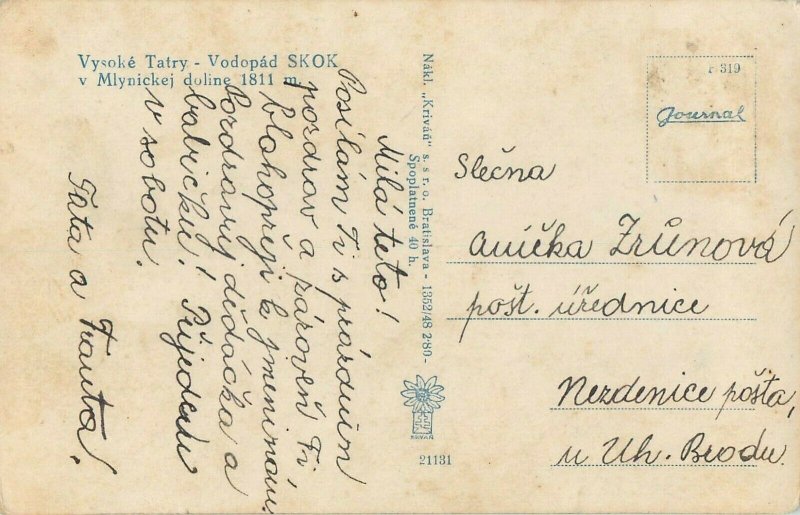 Vysoké Tatry - Vodopád SKOK
v Mlynickej doline 1811 m.
Milá teto!
Posílám Ti s prázdnin
pozdrav a zároveň Ti
blahopřeji k jmeninám.
Pozdravuj dědáčka a
babičku! Přijedem
v sobotu.
Táta a Franta.
Nákl. „Kriváň" s. s r. o. Bratislava - 1352/48 2·80-
Spoplatnené 40 h.
KRIVÁŇ
21131
F 319
Journal
Slečna
Anička Zrůnová
pošt. úřednice
Nezdenice pošta,
u Uh. Brodu.